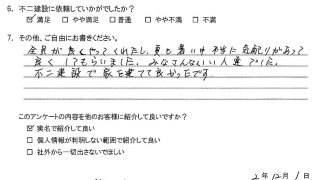 6. 不二建設に依頼していかがでしたか?
☑ 満足 □ やや満足 □ 普通 □ やや不満 □ 不満
7. その他、ご自由にお書きください。
全員が良くやってくれたし、夏も暑い中本当に気配りがあって
良くしてもらいました。みなさんいい人達でした。
不二建設で家を建てて良かったです。
このアンケートの内容を他のお客様に紹介して良いですか?
☑ 実名で紹介して良い
□ 個人情報が判明しない範囲で紹介して良い
□ 社外から一切出さないでほしい
2年12月1日